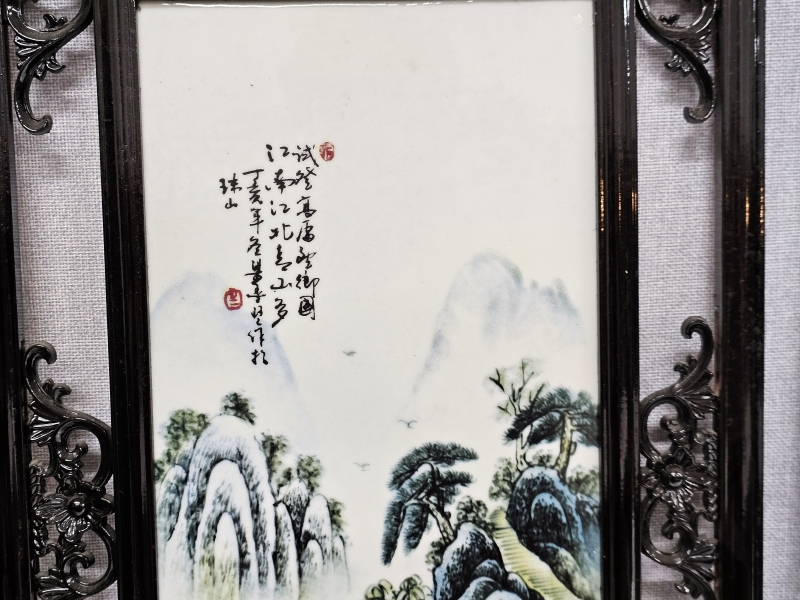 试登高望鄉国
江南江北青山多
丁亥年冬作於
珠山